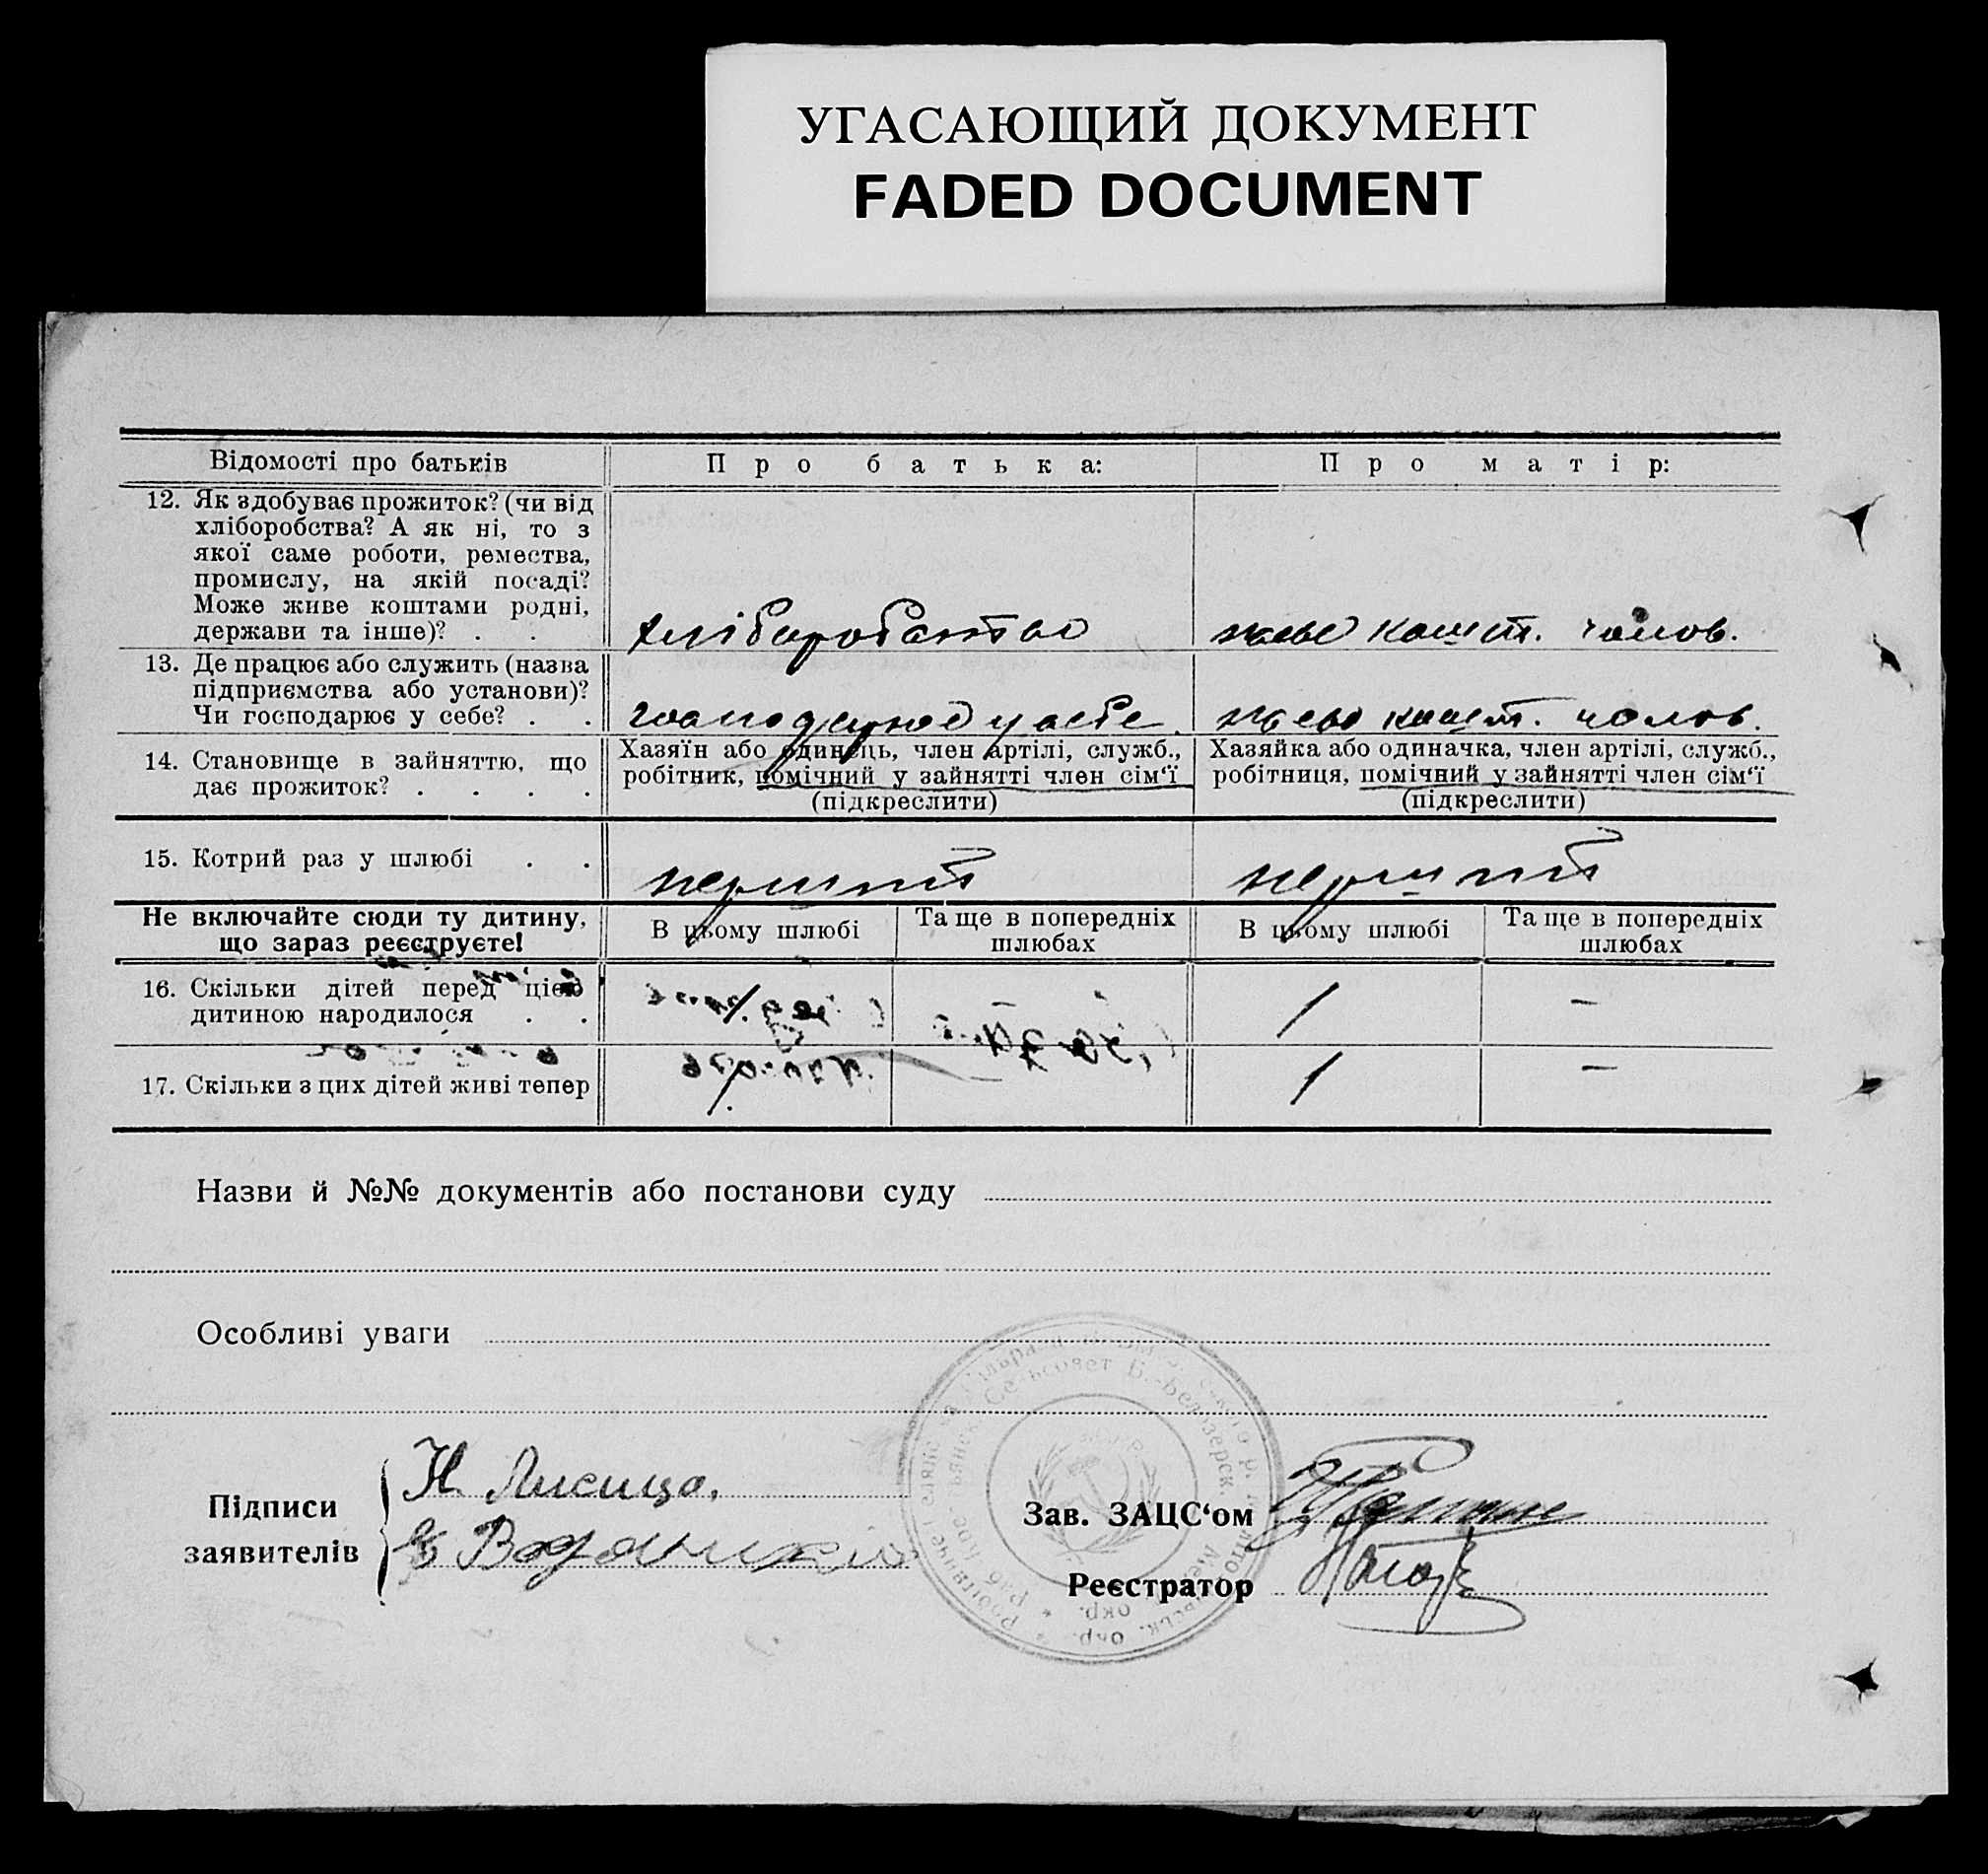 УГАСАЮЩИЙ ДОКУМЕНТ
FADED DOCUMENT
Відомості про батьків
Про батька:
Про матір:
12. Як здобуває прожиток? (чи від
хліборобства? А як ні, то з
якої саме роботи, ремества,
промислу, на якій посаді?
Може живе коштами родні,
держави та інше)? . .
хліборобство
живе кошт. чолов.
13. Де працює або служить (назва
підприємства або установи)?
Чи господарює у себе? . .
господарює у себе
живе кошт. чолов.
14. Становище в зайняттю, що
дає прожиток? . . . .
Хазяїн або одинець, член артілі, служб.,
робітник, помічний у зайнятті член сім‘ї
(підкреслити)
Хазяйка або одиначка, член артілі, служб.,
робітниця, помічний у зайнятті член сім‘ї
(підкреслити)
15. Котрий раз у шлюбі . .
перший
перший
Не включайте сюди ту дитину,
що зараз реєструєте!
В цьому шлюбі
Та ще в попередніх
шлюбах
В цьому шлюбі
Та ще в попередніх
шлюбах
16. Скільки дітей перед цією
дитиною народилося . .
1
–
17. Скільки з цих дітей живі тепер
1
–
Назви й №№ документів або постанови суду
Особливі уваги
Підписи
заявителів
Н. Лисицо.
Зав. ЗАЦС‘ом
Реєстратор